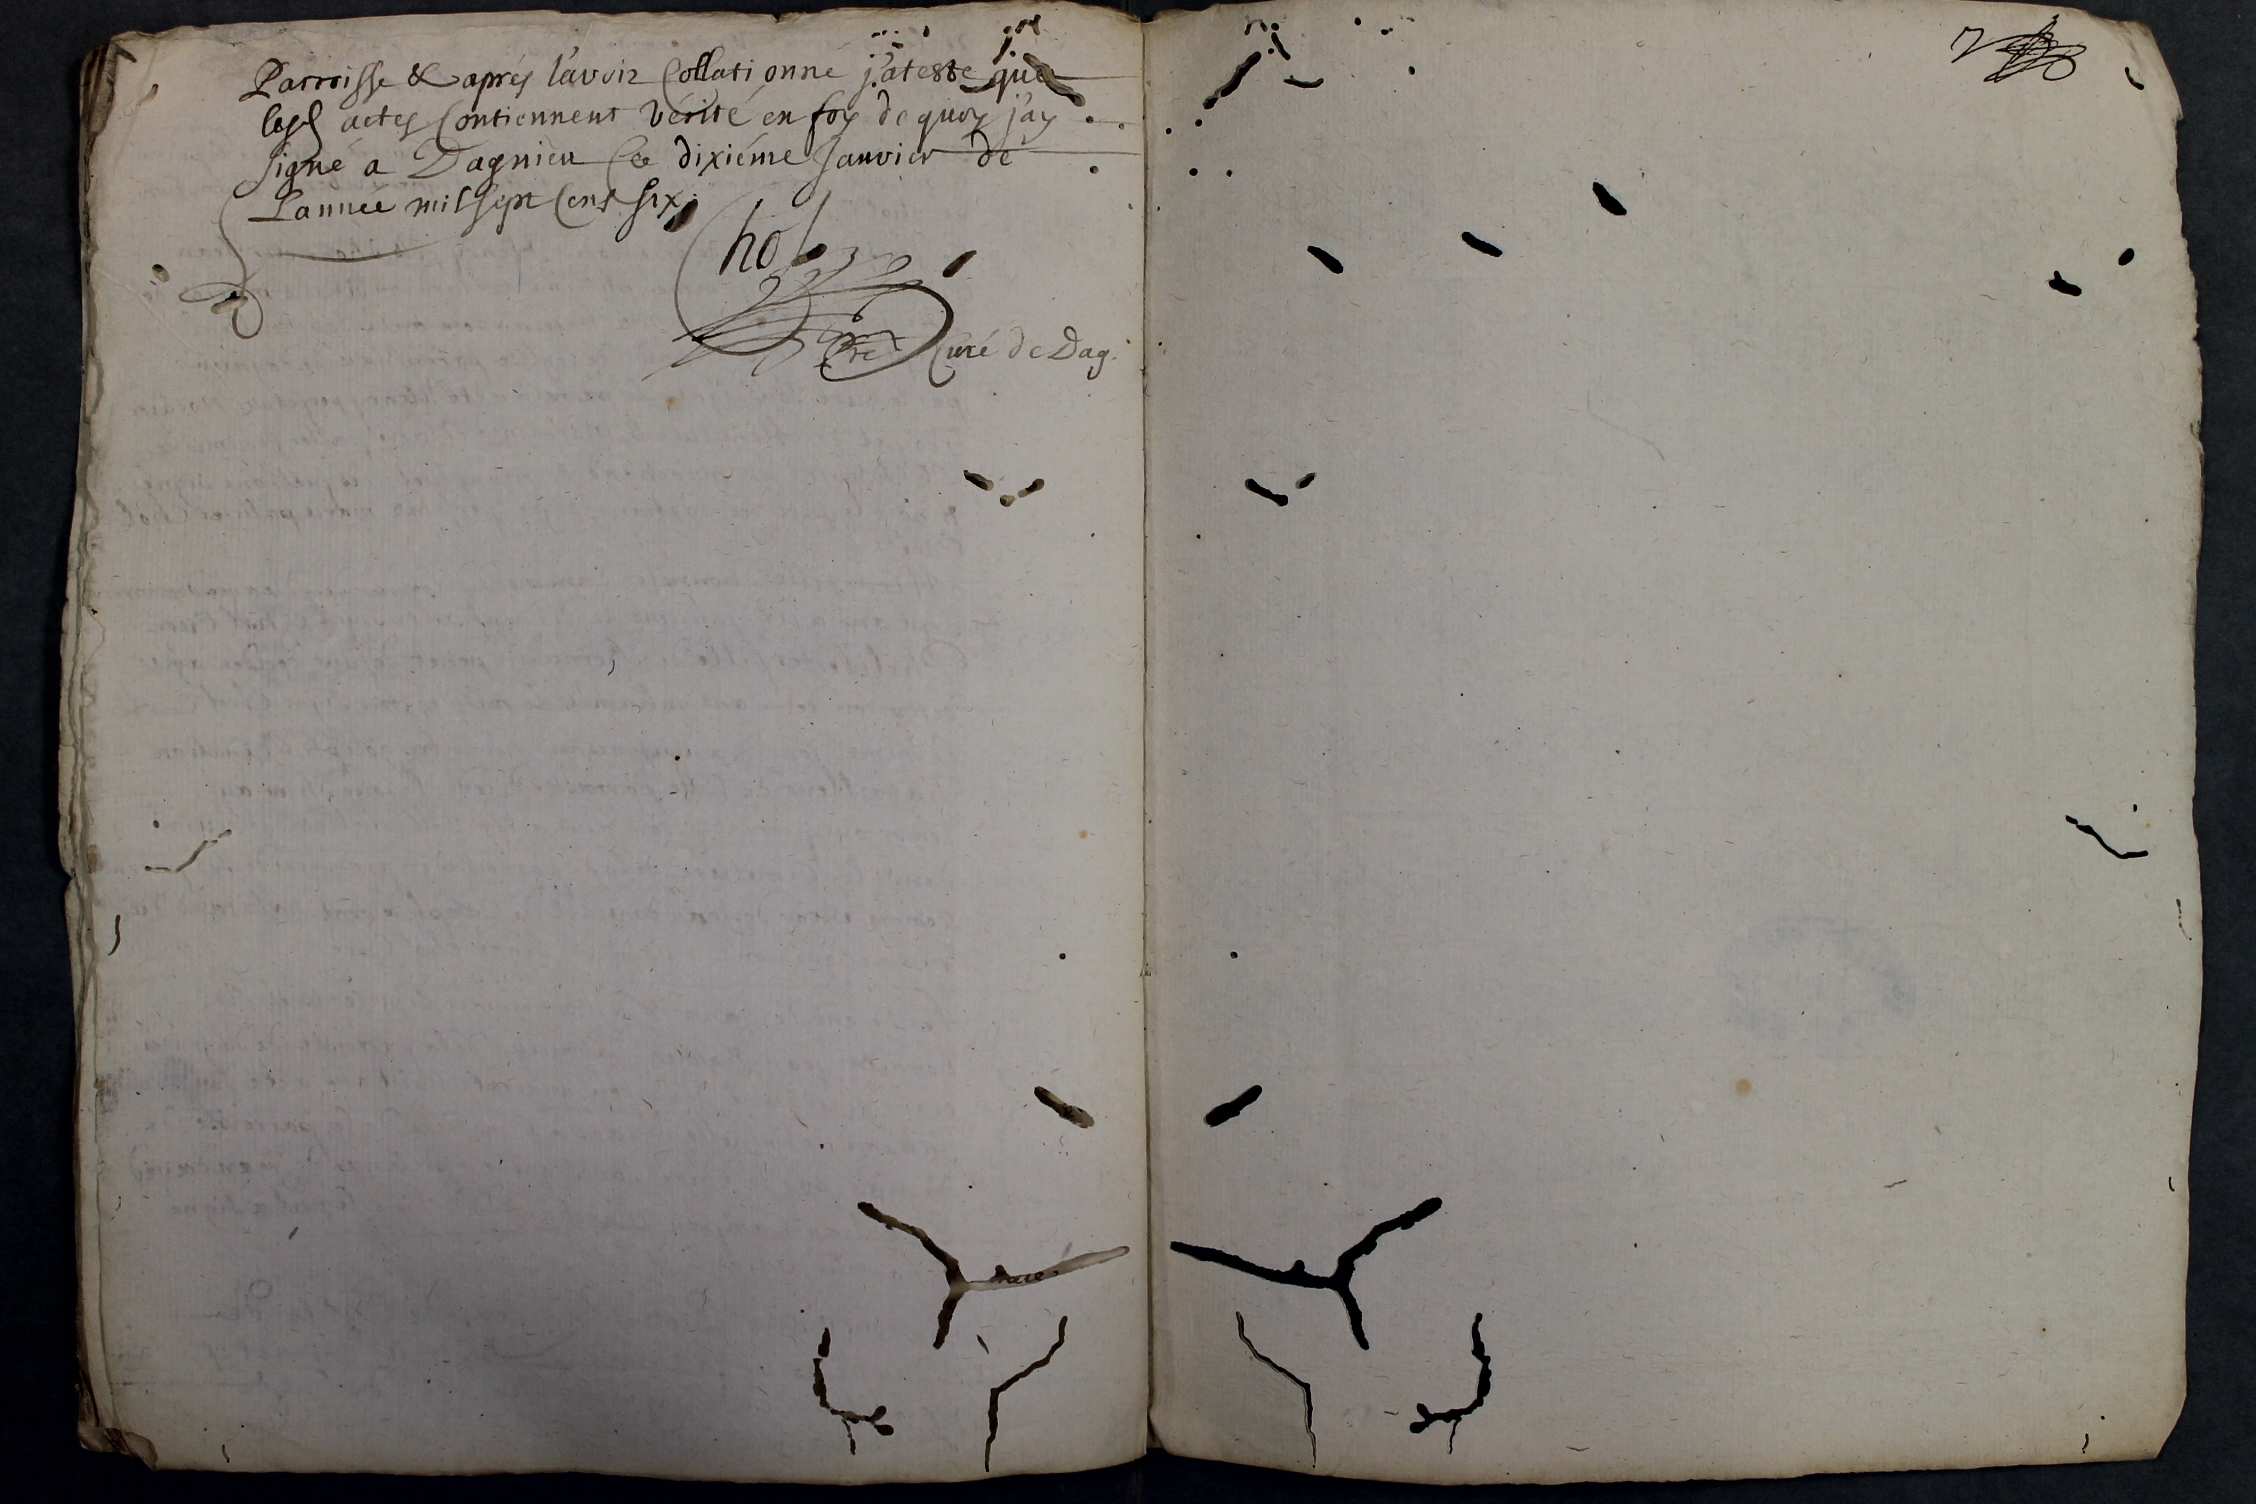 Parroisse & aprés l'avoir Collationné j'ateste que
lesd actes Contiennent vérité en foy de quoy j'ay
signé a Dagnieu Ce dixiéme Janvier de
L'année mil sept Cent six.
Chol
Curé de Dag.
7